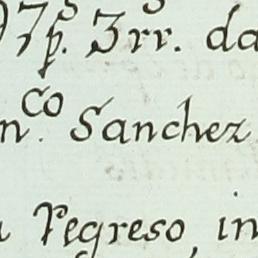 97p.s 3rr. da
n.co Sanchez
a Regreso, in